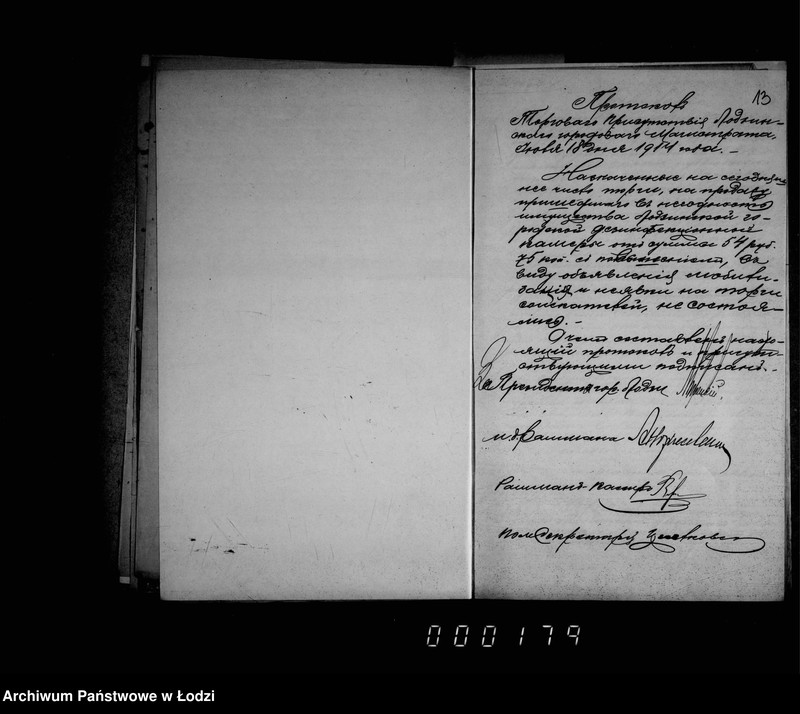 13
Протоколъ
Торговаго Присутствія Лодзин-
скаго городоваго Магистрата,
Іюля 18 дня 1914 года. -
Назначенные на сегодняш-
нее число торги, на продажу
пришедшаго въ негодность
имущества Лодзинской го-
родской дезинфекціонной
камеры отъ суммы 54 руб.
75 коп. съ повышеніемъ, въ
виду объявленія мобили-
заціи и неявки на торги
соискателей, не состоя-
лись. -
О чемъ составленъ насто-
ящій протоколъ и присут-
ствующими подписанъ. -
За Президента гор. Лодзи
и. д. Ратмана
Ратманъ
Пом. Секретаря
000179
Archiwum Państwowe w Łodzi